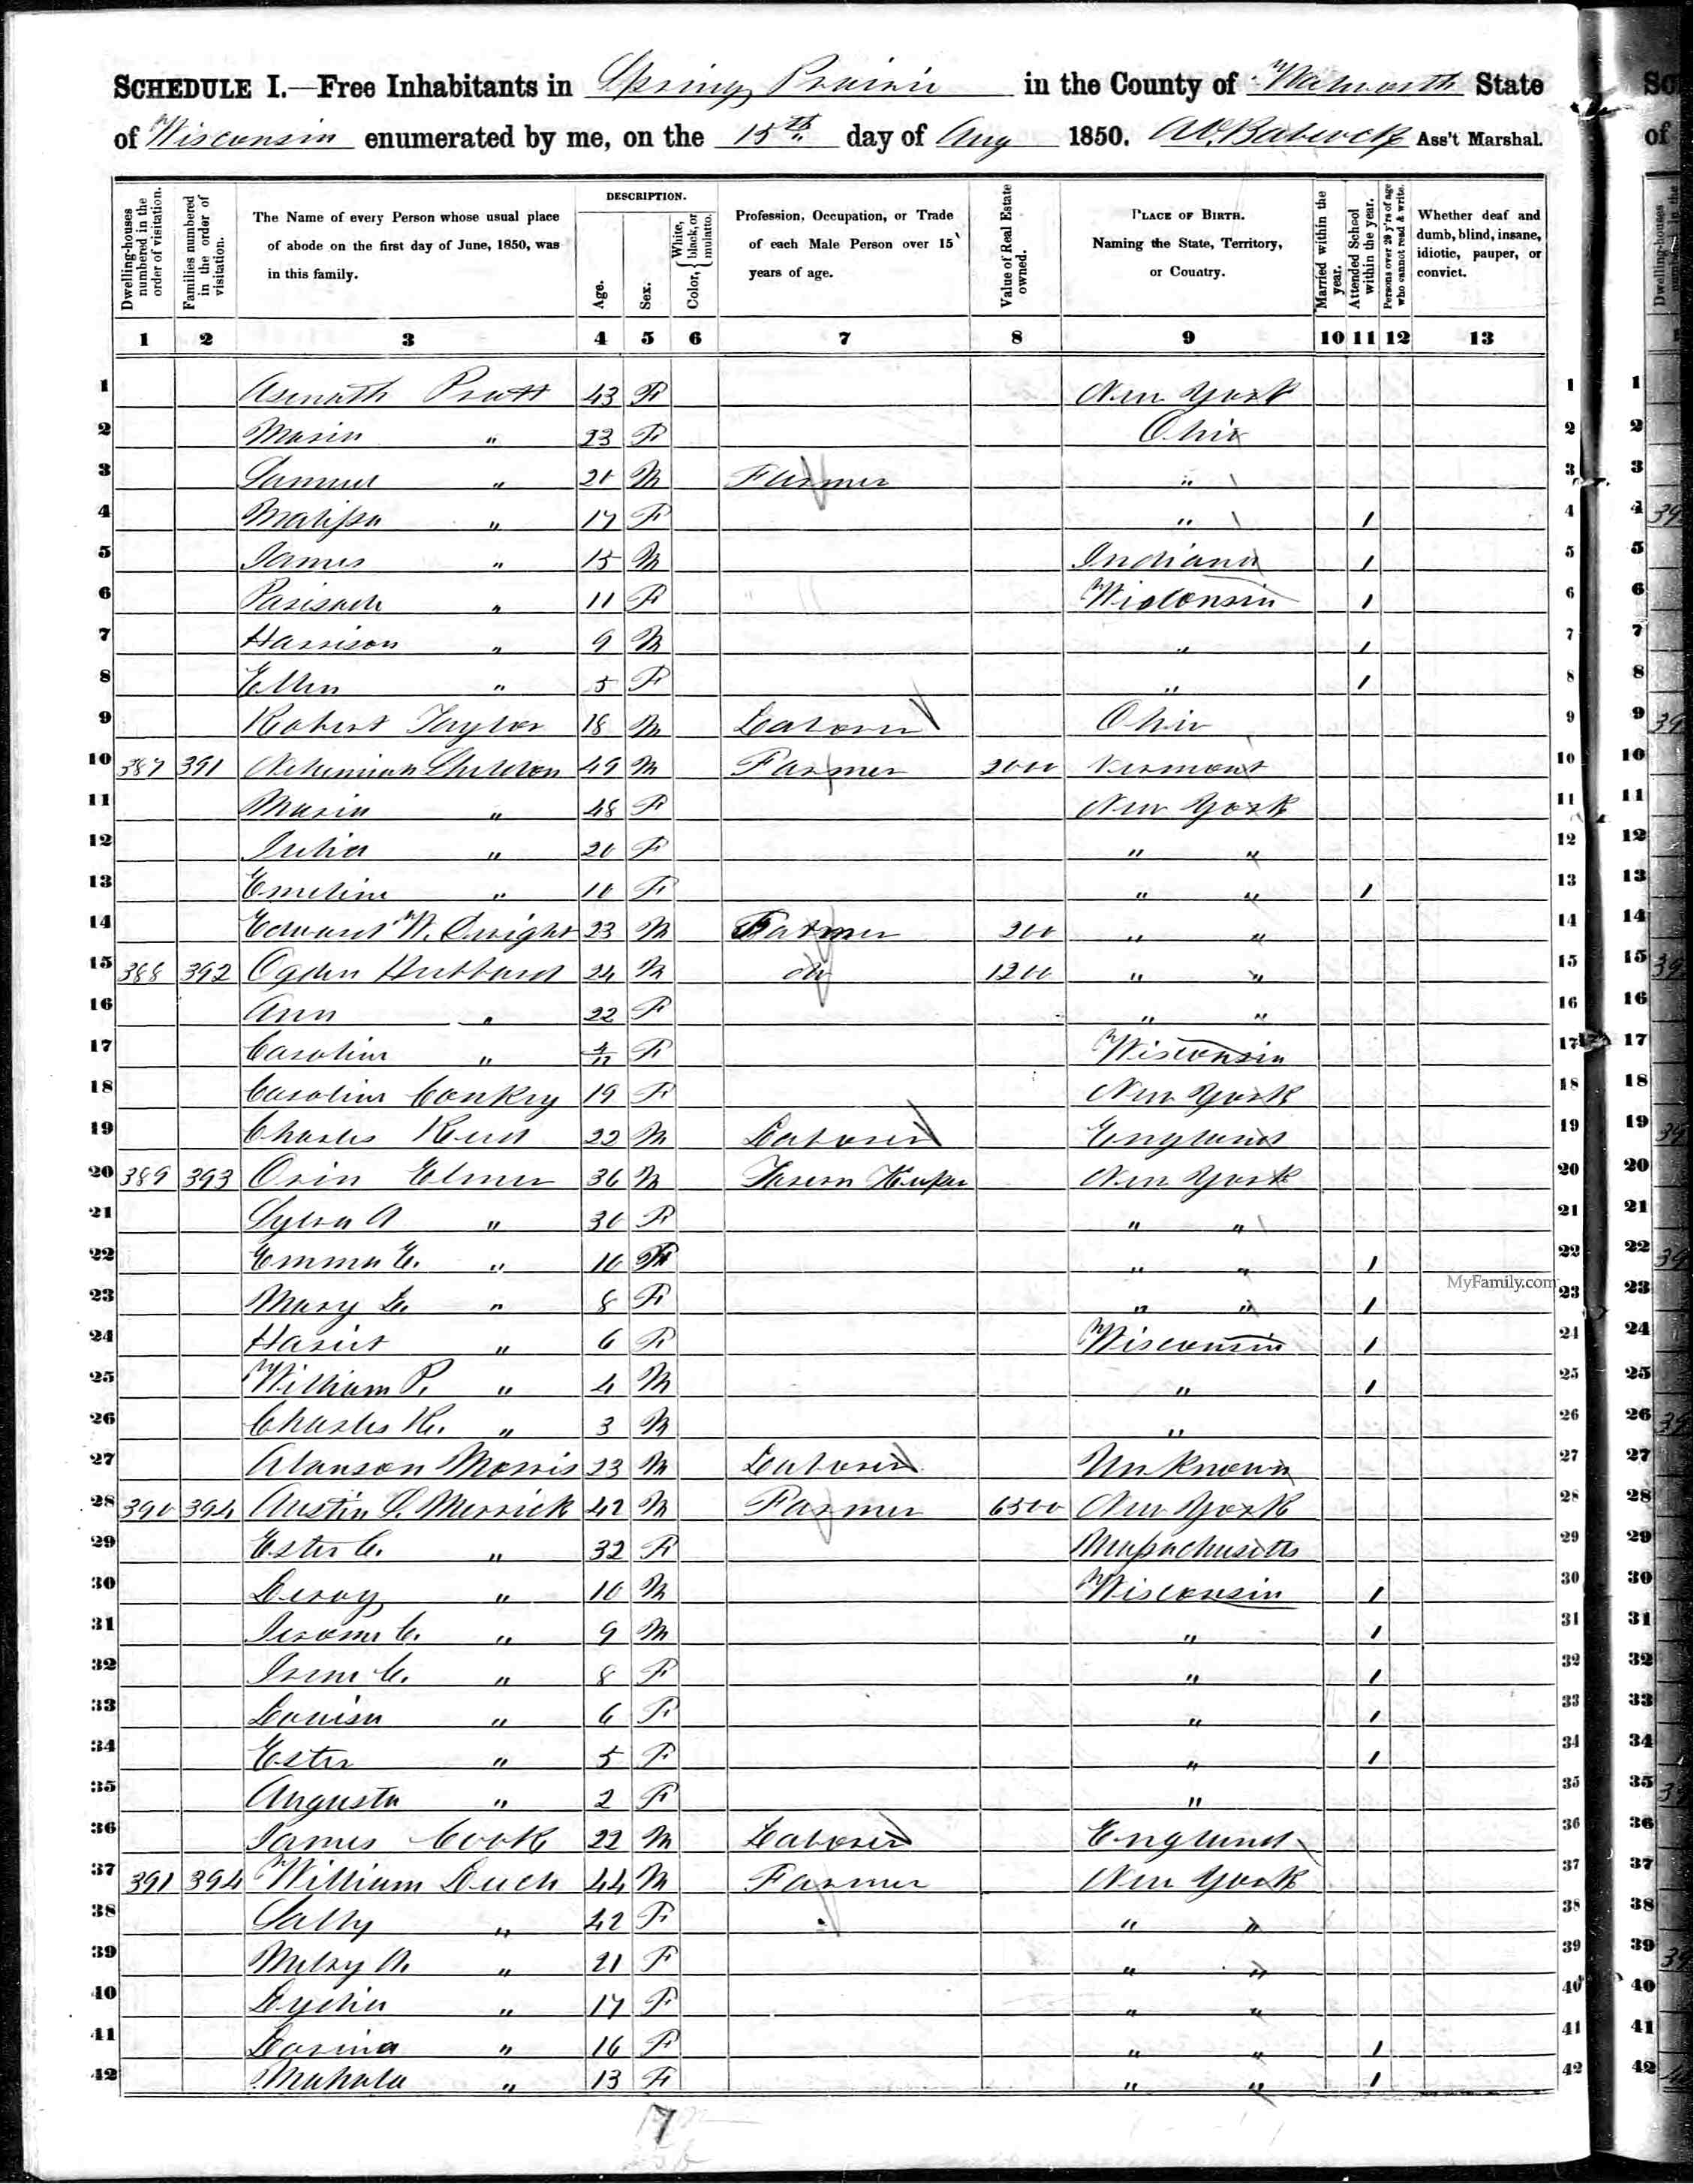 SCHEDULE I.—Free Inhabitants in Spring Prairie in the County of Walworth State
of Wisconsin enumerated by me, on the 15th day of Aug 1850. Ass't Marshal.
Dwelling-houses numbered in the order of visitation.
Families numbered in the order of visitation.
The Name of every Person whose usual place of abode on the first day of June, 1850, was in this family.
DESCRIPTION.
Age.
Sex.
Color, { White, black, or mulatto.
Profession, Occupation, or Trade of each Male Person over 15 years of age.
Value of Real Estate owned.
PLACE OF BIRTH. Naming the State, Territory, or Country.
Married within the year.
Attended School within the year.
Persons over 20 y'rs of age who cannot read & write.
Whether deaf and dumb, blind, insane, idiotic, pauper, or convict.
1 2 3 4 5 6 7 8 9 10 11 12 13
1 Asenath Pratt 43 F New York 1
2 Maria " 23 F Ohio 2
3 Samuel " 20 M Farmer " 3
4 Malissa " 17 F " 1 4
5 James " 15 M Indiana 1 5
6 11 F Wisconsin 1 6
7 Harrison " 9 M " 1 7
8 Ellen " 5 F " 1 8
9 Robert Taylor 18 M Laborer Ohio 9
10 387 391 Nehemiah 49 M Farmer 2000 Vermont 10
11 Maria " 48 F New York 11
12 Julia " 20 F " " 12
13 Emeline " 10 F " " 1 13
14 Edward W. Dwight 23 M Farmer 200 " " 14
15 388 392 Ogden Hubbard 24 M do 1200 " " 15
16 Ann " 22 F " " 16
17 Caroline " F Wisconsin 17
18 Caroline Conkey 19 F New York 18
19 Charles 22 M Laborer England 19
20 389 393 Orin Elmer 36 M New York 20
21 30 F " " 21
22 Emma E. " 10 F " " 1 22
23 Mary L. " 8 F " " 1 23
24 Hariet " 6 F Wisconsin 1 24
25 William P. " 4 M " 1 25
26 Charles H. " 3 M " 26
27 Alanson Morris 23 M Laborer Unknown 27
28 390 394 Austin L. Merrick 42 M Farmer 6500 New York 28
29 Ester C. " 32 F Massachusetts 29
30 Leroy " 10 M Wisconsin 1 30
31 Jerome C. " 9 M " 1 31
32 Irene C. " 8 F " 1 32
33 Louisa " 6 F " 1 33
34 Ester " 5 F " 1 34
35 Augusta " 2 F " 35
36 James Cook 22 M Laborer England 36
37 391 394 William 44 M Farmer New York 37
38 Sally " 42 F " " 38
39 21 F " " 39
40 Lydia " 17 F " " 40
41 Lorina " 16 F " " 1 41
42 Mahala " 13 F " " 1 42
MyFamily.com